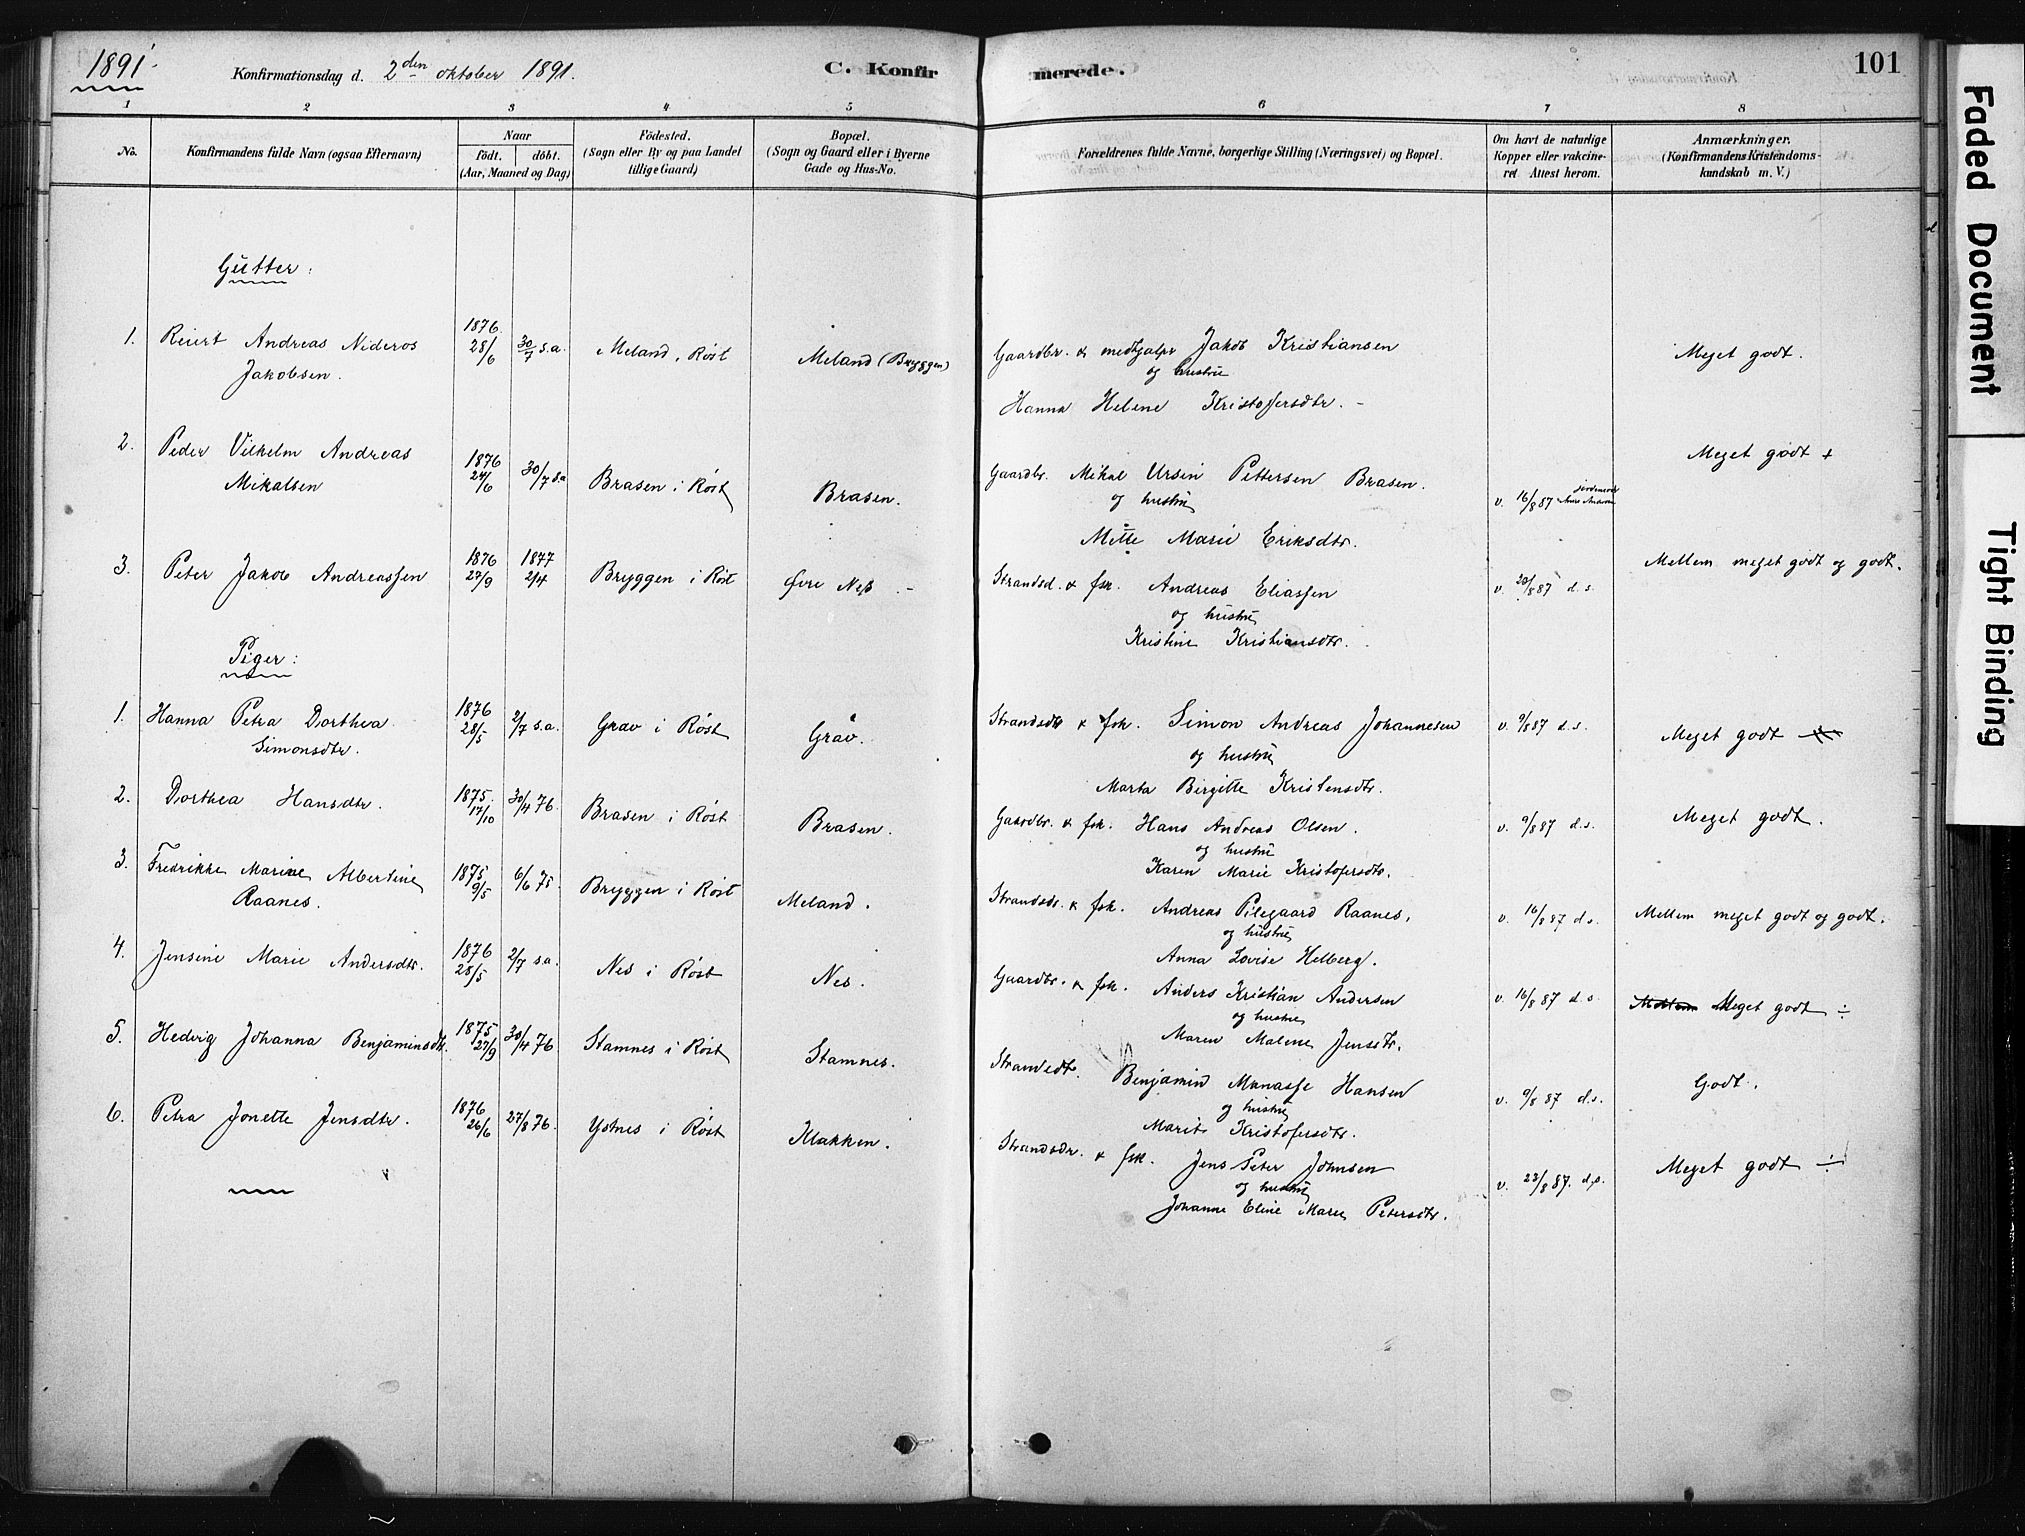 1891
Konfirmationsdag d. 2den oktober 1891.
C. Konfirmerede.
101
1 2 3 4 5 6 7 8
No.
Konfirmandens fulde Navn (ogsaa Efternavn)
Naar
födt. döbt.
(Aar, Maaned og Dag)
Födested.
(Sogn eller By og paa Landet
tillige Gaard)
Bopæl.
(Sogn og Gaard eller i Byerne
Gade og Hus-No.
Forældrenes fulde Navne, borgerlige Stilling (Næringsvei) og Bopæl.
Om havt de naturlige
Kopper eller vakcine-
ret Attest herom.
Anmærkninger.
(Konfirmandens Kristendoms-
kundskab m. V.)
Gutter:
1. Reiert Andreas Nideros
Jakobsen.
1876 28/6 30/7 s.a. Meland, Röst Meland (Bryggen)
Gaardbr. & medhjælper Jakob Kristiansen
og hustru
Hanna Helene Kristofersdtr. -
Meget godt.
2. Peder Vilhelm Andreas
Mikalsen
1876 24/6 30/7 s.a Brasen i Röst Brasen.
Gaardbr. Mikal Ursin Pettersen Brasen.
og hustru
Mette Marie Eriksdtr.
v. 16/8 87
Meget godt +
3. Peter Jakob Andreassen
1876 27/9 1877 2/4 Bryggen i Röst Øvre Ness. -
Strandsd. & fsk. Andreas Eliassen
og hustru
Kristine Kristiansdtr.
v. 20/8 87 d.s.
Mellem meget godt og godt.
Piger:
1. Hanna Petra Dorthea
Simonsdtr.
1876 28/5 2/7 s.a. Grav i Röst Gråv.
Strandsdr & fsk. Simon Andreas Johannesen
og hustru
Marta Birgitte Kristensdtr.
v. 9/8 87 d.s.
Meget godt
2. Dorthea Hansdtr.
1875. 17/10 30/4 76. Brasen i Röst Brasen.
Gaardbr. & fsk. Hans Andreas Olsen.
og hustru
Karen Marie Kristofersdtr.
v. 9/8 87 d.s.
Meget godt.
3. Fredrikke Marine Albertine
Raanes.
1875 9/5 6/6 75. Bryggen i Röst Meland.
Strandsdr. & fsk. Andreas Pilegaard Raanes.
og hustru
Anna Lovise Helberg.
v. 16/8 87 d.s.
Mellem meget godt og godt.
4. Jensine Marie Andersdtr.
1876 28/5 2/7 s.a. Nes i Röst Nes.
Gaardbr. & fsk. Anders Kristian Andersen
og hustru
Maren Malene Jensdtr.
v. 16/8 87 d.s.
Mellem Meget godt ÷
5. Hedvig Johanna Benjaminsdtr.
1875 27/9 30/4 76 Stamnes i Röst Stamnes.
Strandsdr. Benjamin Manasse Hansen
og hustru
Marit Kristofersdtr.
v. 9/8 87 d.s.
Godt.
6. Petra Jonette Jensdtr.
1876 26/6 27/8 76. Ystnes i Röst Klakken.
Strandsdr. & fsk. Jens Peter Johnsen
og hustru
Johanne Eline Marie Petersdtr.
v. 23/8 87. d.s.
Meget godt ÷
Faded Document
Tight Binding